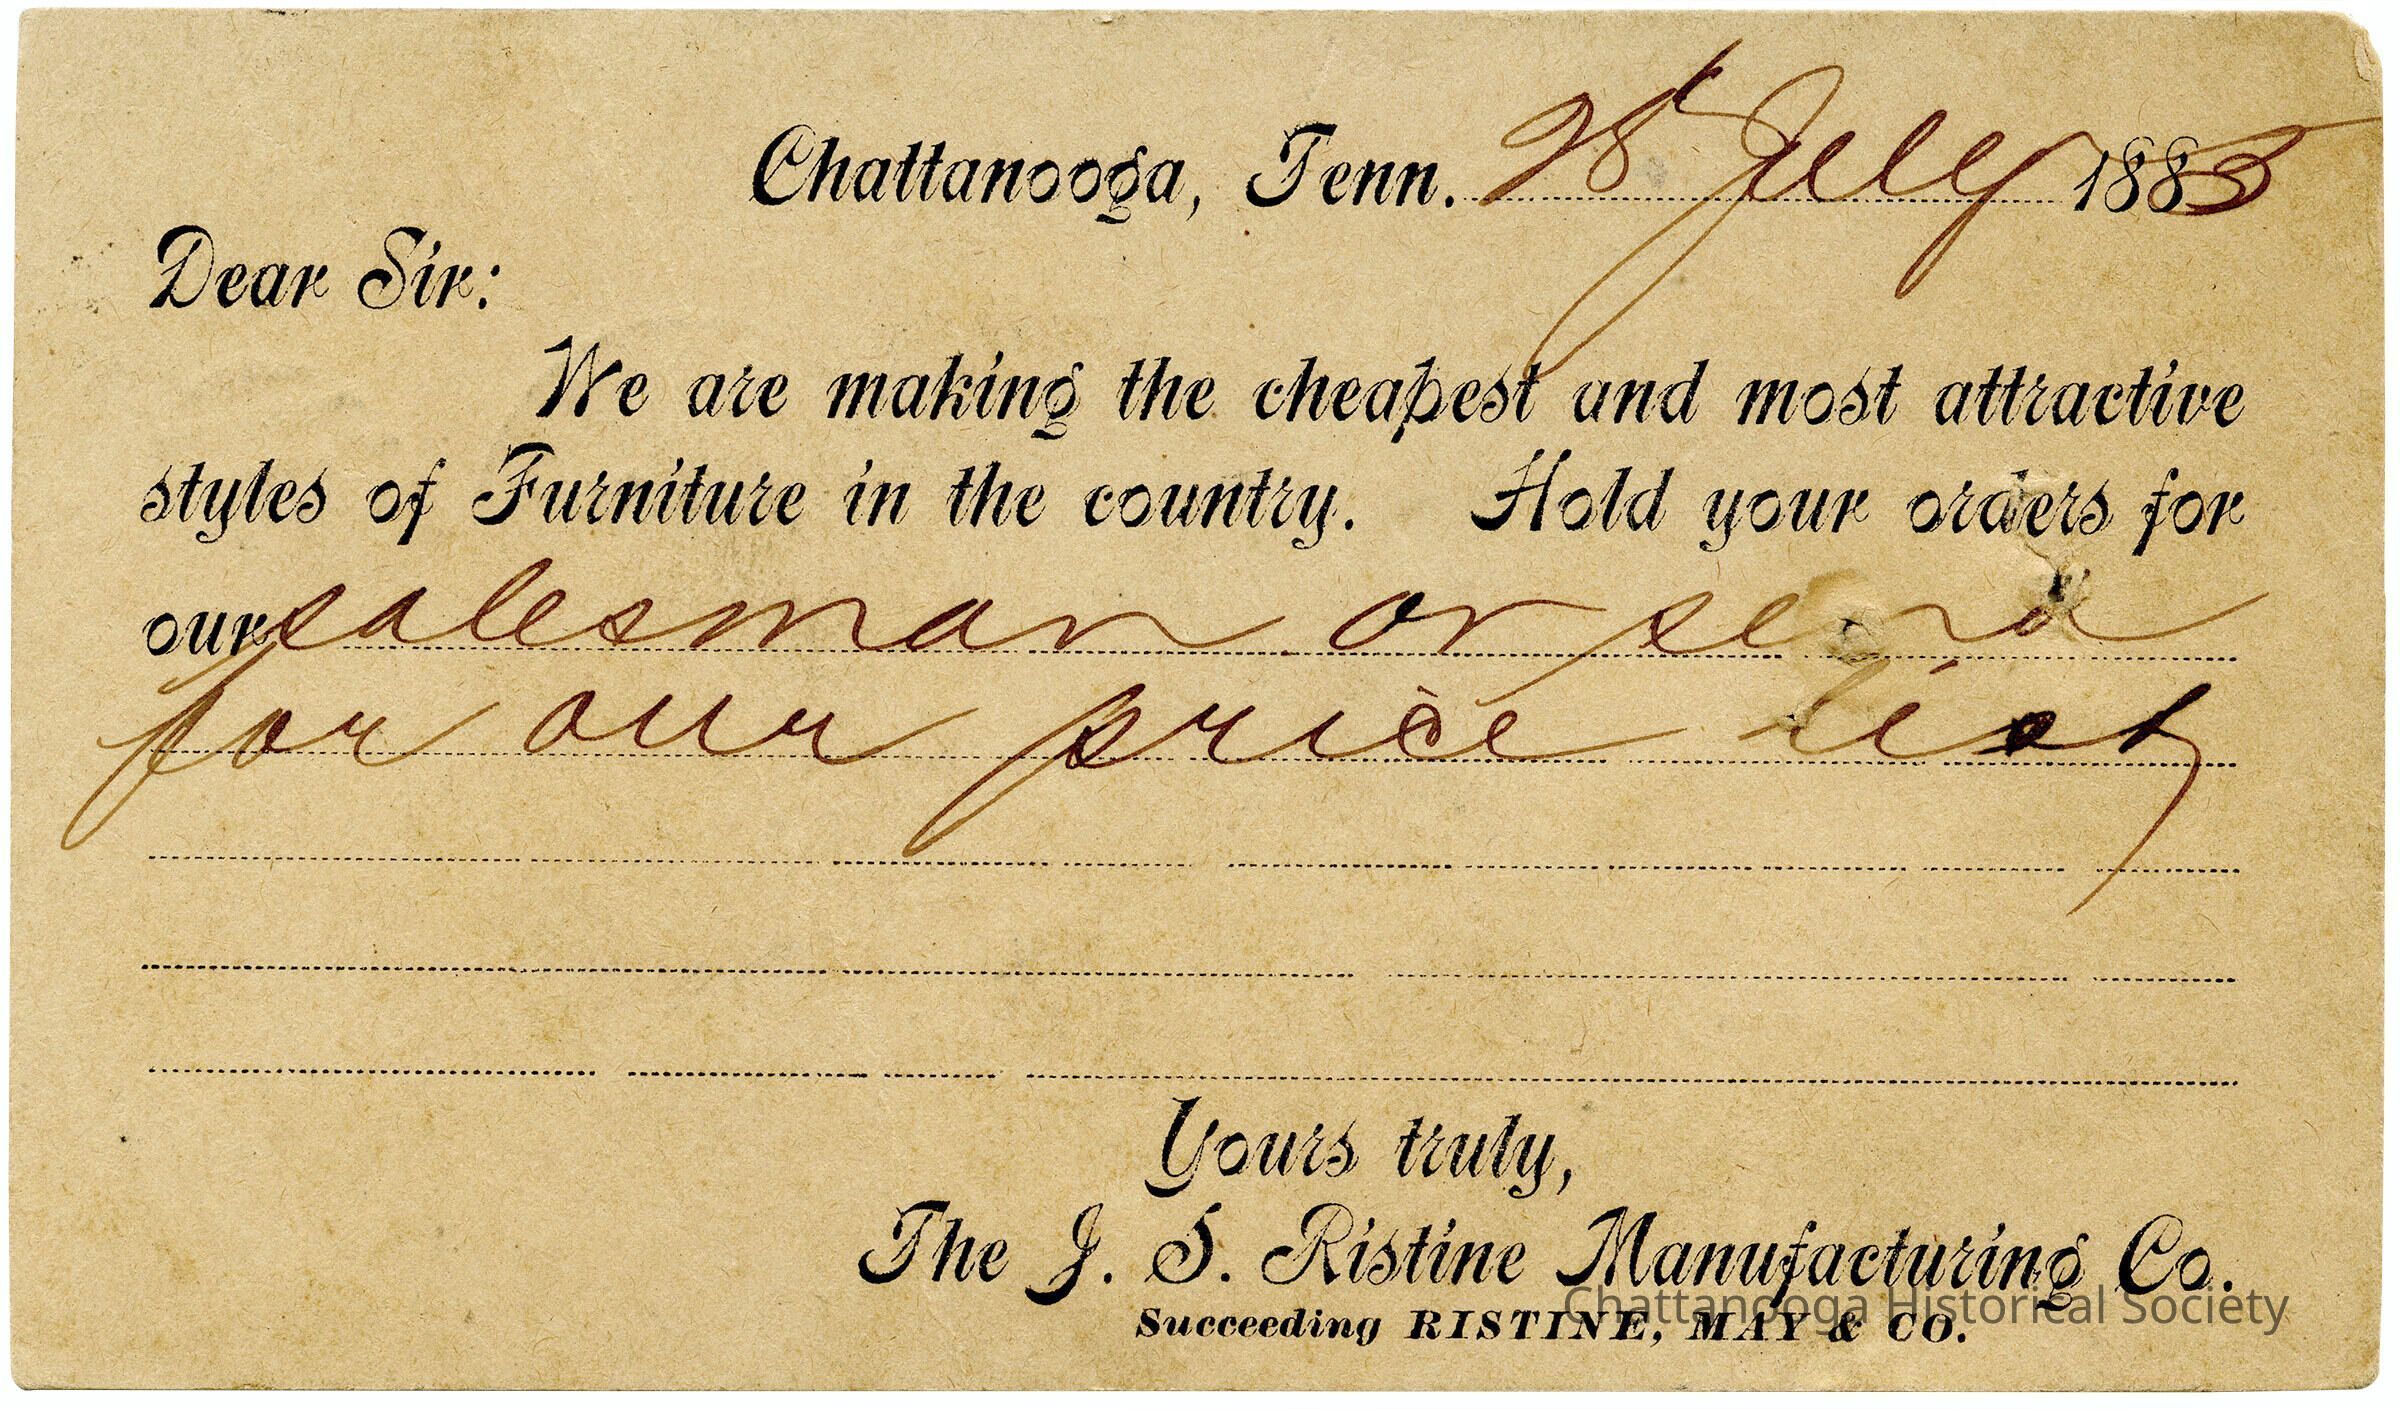 Chattanooga, Tenn. 28 July 1883
Dear Sir:
We are making the cheapest and most attractive
styles of Furniture in the country. Hold your orders for
our salesman or send
for our price list
Yours truly,
The J. S. Ristine Manufacturing Co.
Succeeding RISTINE, MAY & CO.
Chattanooga Historical Society